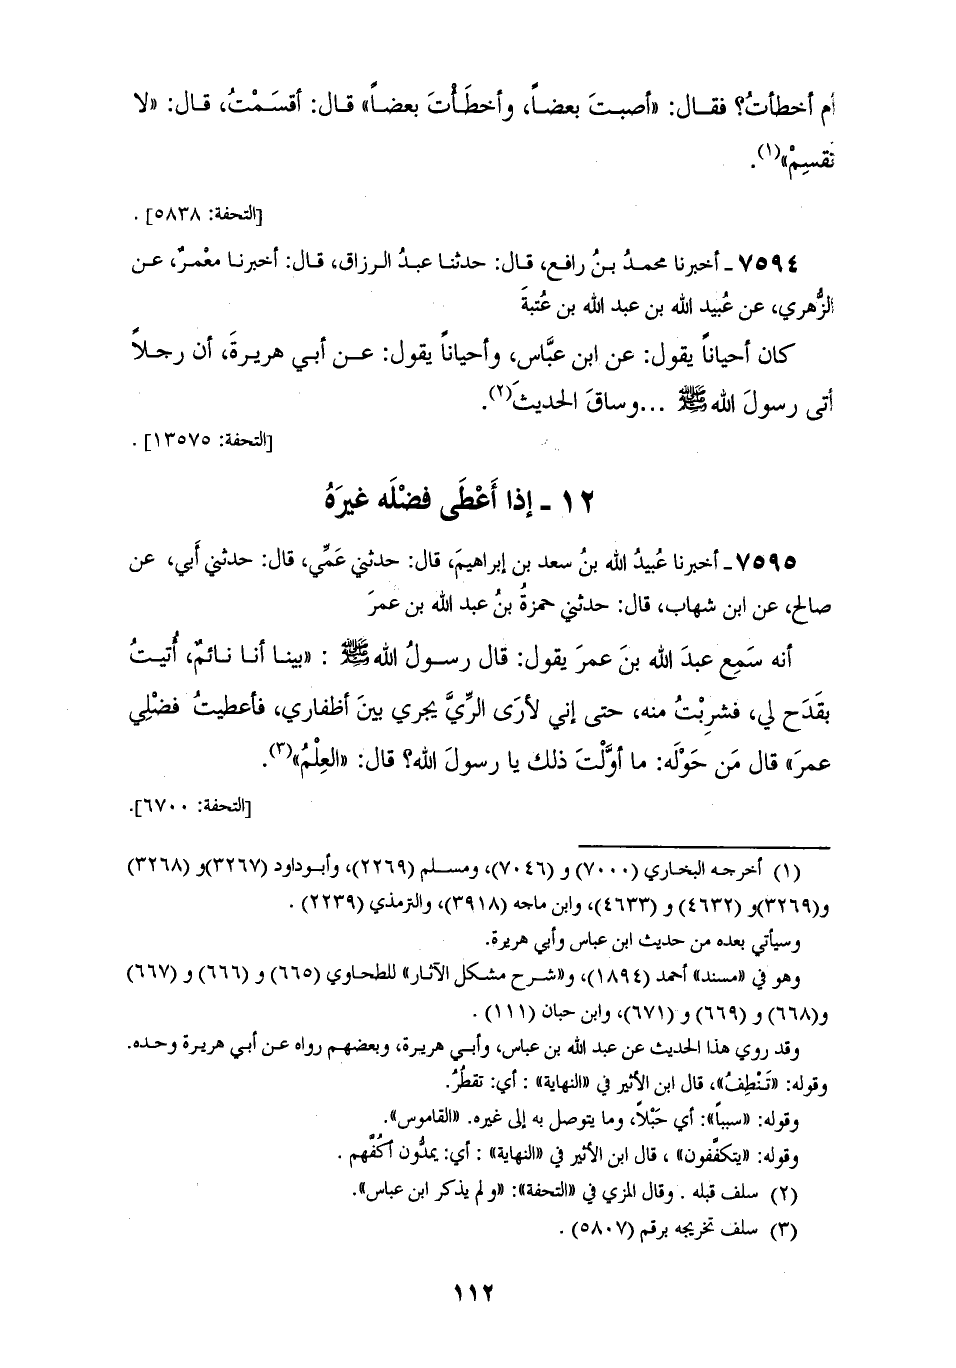 أم أخطأتُ؟ فقـال: «أصبـتَ بعضـاً، وأخطَـأْتَ بعضـاً» قال: أقسَـمْتُ، قـال: «لا
تُقسِمْ»(١).
[التحفة: ٥٨٣٨] .
٧٥٩٤ ـ أخبرنا محمـدُ بـنُ رافع، قـال: حدثنـا عبدُ الـرزاق، قال: أخبرنـا معْمـرٌ، عـن
الزُّهري، عن عُبيد الله بن عبد الله بن عُتبةَ
كان أحياناً يقول: عن ابن عبَّاس، وأحياناً يقول: عـن أبـي هريـرةَ، أن رجـلاً
أتى رسولَ الله ﷺ ...وساقَ الحديثَ(٢).
[التحفة: ١٣٥٧٥] .
١٢ ـ إذا أَعْطَى فضْلَه غيرَهُ
٧٥٩٥ ـ أخبرنا عُبيدُ الله بنُ سعد بن إبراهيمَ، قال: حدثني عَمِّي، قال: حدثني أَبي، عن
صالح، عن ابن شهاب، قال: حدثني حمزةُ بنُ عبد الله بن عمرَ
أنه سَمِع عبدَ الله بنَ عمرَ يقول: قال رسـولُ الله ﷺ : «بينـا أنـا نائـمٌ، أُتيـتُ
بقَدَحٍ لي، فشرِبْتُ منه، حتى إني لأرَى الرِّيَّ يجري بينَ أظفاري، فأعطيتُ فضْلِي
عمرَ» قال مَن حَوْلَه: ما أوَّلْتَ ذلك يا رسولَ الله؟ قال: «العِلْمُ»(٣).
[التحفة: ٦٧٠٠].
(١) أخرجـه البخـاري (٧٠٠٠) و (٧٠٤٦)، ومسـلم (٢٢٦٩)، وأبـوداود (٣٢٦٧)و (٣٢٦٨)
و(٣٢٦٩)و (٤٦٣٢) و (٤٦٣٣)، وابن ماجه (٣٩١٨)، والترمذي (٢٢٣٩) .
وسيأتي بعده من حديث ابن عباس وأبي هريرة.
وهو في «مسند» أحمد (١٨٩٤)، و«شـرح مشـكل الآثـار» للطحـاوي (٦٦٥) و (٦٦٦) و (٦٦٧)
و(٦٦٨) و (٦٦٩) و (٦٧١)، وابن حبان (١١١) .
وقد روي هذا الحديث عن عبد الله بن عباس، وأبـي هريـرة، وبعضهـم رواه عـن أبي هريـرة وحـده.
وقوله: «تَـنْطِفُ»، قال ابن الأثير في «النهاية» : أي: تقطُرُ.
وقوله: «سبباً»: أي حَبْلاً، وما يتوصل به إلى غيره. «القاموس».
وقوله: «يتكفَّفون» ، قال ابن الأثير في «النهاية» : أي: يمدُّون أكُفَّهم .
(٢) سلف قبله . وقال المزي في «التحفة»: «و لم يذكر ابن عباس».
(٣) سلف تخريجه برقم (٥٨٠٧) .
١١٢